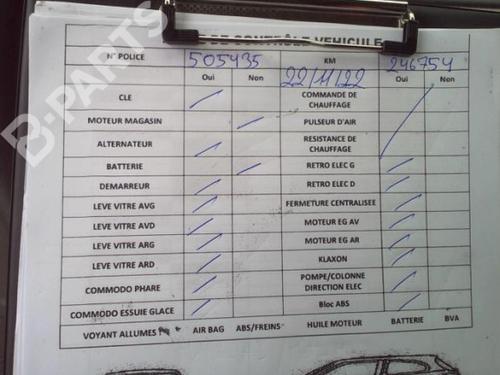 DE CONTRÔLE VEHICULE
N° POLICE 505435 KM 246754
Oui Non 22/11/22 Oui Non
CLE COMMANDE DE CHAUFFAGE
MOTEUR MAGASIN PULSEUR D'AIR
ALTERNATEUR RESISTANCE DE CHAUFFAGE
BATTERIE RETRO ELEC G
DEMARREUR RETRO ELEC D
LEVE VITRE AVG FERMETURE CENTRALISEE
LEVE VITRE AVD MOTEUR EG AV
LEVE VITRE ARG MOTEUR EG AR
LEVE VITRE ARD KLAXON
COMMODO PHARE POMPE/COLONNE DIRECTION ELEC
COMMODO ESSUIE GLACE Bloc ABS
VOYANT ALLUMES AIR BAG ABS/FREINS HUILE MOTEUR BATTERIE BVA
B-PARTS